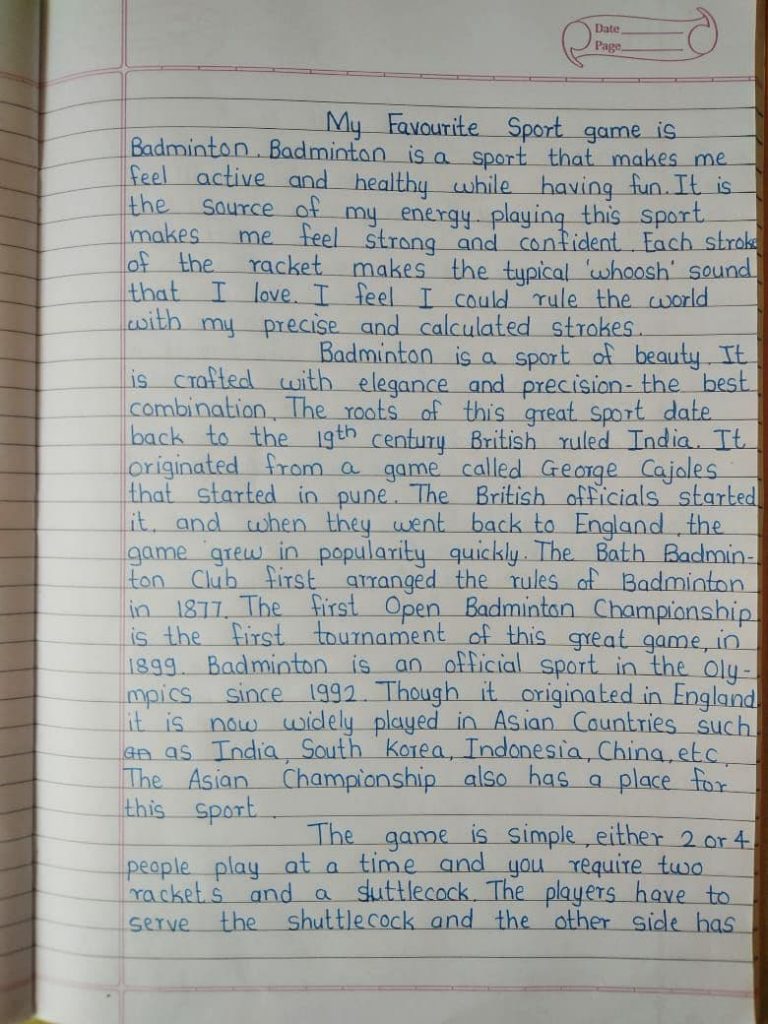 Date
Page
My Favourite Sport game is
Badminton. Badminton is a sport that makes me
feel active and healthy while having fun. It is
the source of my energy. playing this sport
makes me feel strong and confident. Each stroke
of the racket makes the typical 'whoosh' sound
that I love. I feel I could rule the world
with my precise and calculated strokes.
Badminton is a sport of beauty. It
is crafted with elegance and precision - the best
combination. The roots of this great sport date
back to the 19th century British ruled India. It
originated from a game called George Cajoles
that started in pune. The British officials started
it, and when they went back to England, the
game grew in popularity quickly. The Bath Badmin-
ton Club first arranged the rules of Badminton
in 1877. The first Open Badminton Championship
is the first tournament of this great game, in
1899. Badminton is an official sport in the Oly-
mpics since 1992. Though it originated in England
it is now widely played in Asian Countries such
as India, South Korea, Indonesia, China, etc.
The Asian Championship also has a place for
this sport.
The game is simple, either 2 or 4
people play at a time and you require two
rackets and a suttlecock. The players have to
serve the shuttlecock and the other side has